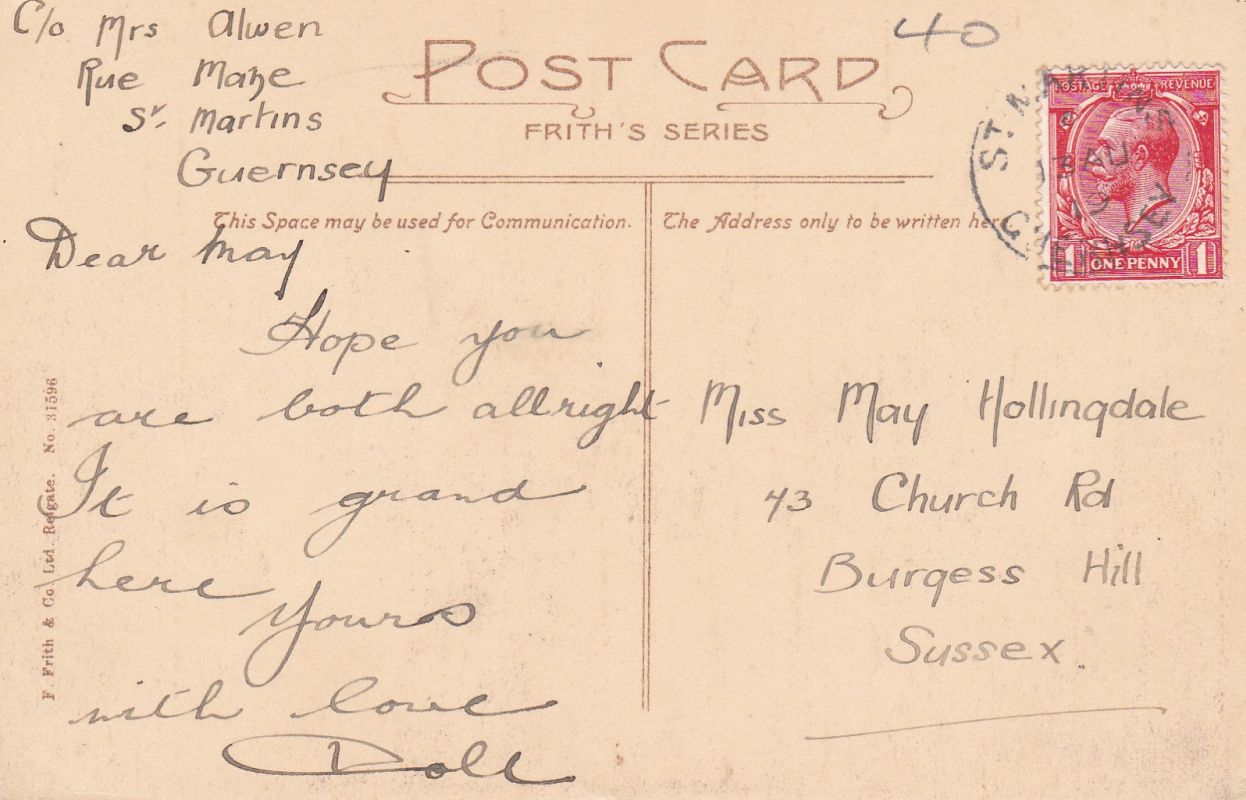 C/o Mrs Alwen
Rue Maze
St. Martins
Guernsey
40
POST CARD
FRITH'S SERIES
This Space may be used for Communication.
The Address only to be written here
Dear May
Hope you
are both allright
It is grand
here
Yours
with love
Doll
Miss May Hollingdale
43 Church Rd
Burgess Hill
Sussex.
POSTAGE REVENUE
1 ONE PENNY 1
ST. MARTIN'S
13 AU
GUERNSEY
F. Frith & Co. Ltd. Reigate. No. 31596